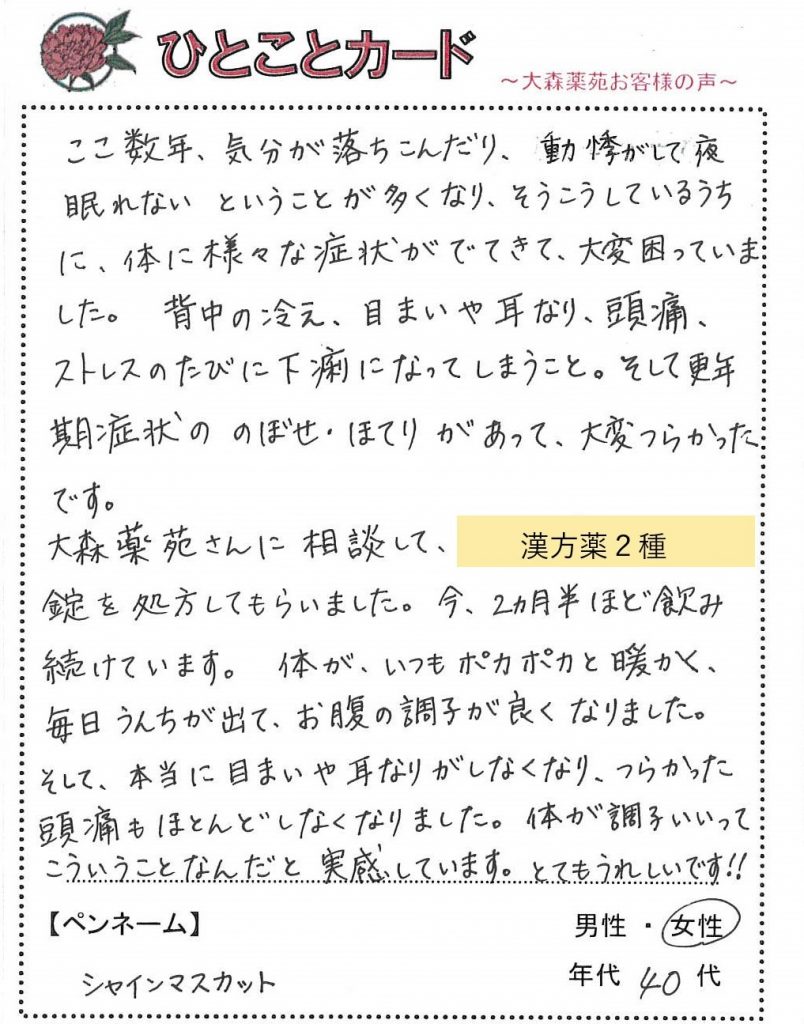 ひとことカード
～大森薬苑お客様の声～
ここ数年、気分が落ちこんだり、動悸がして夜
眠れない ということが多くなり、そうこうしているうち
に、体に様々な症状がでてきて、大変困っていま
した。 背中の冷え、目まいや耳なり、頭痛、
ストレスのたびに下痢になってしまうこと。そして更年
期症状の のぼせ・ほてり があって、大変つらかった
です。
大森薬苑さんに相談して、 漢方薬２種
錠を処方してもらいました。今、2ヵ月半ほど飲み
続けています。 体が、いつもポカポカと暖かく、
毎日うんちが出て、お腹の調子が良くなりました。
そして、本当に目まいや耳なりがしなくなり、つらかった
頭痛もほとんどしなくなりました。体が調子いいって
こういうことなんだと実感しています。とてもうれしいです!!
【ペンネーム】 男性 ・ 女性
シャインマスカット 年代 40 代